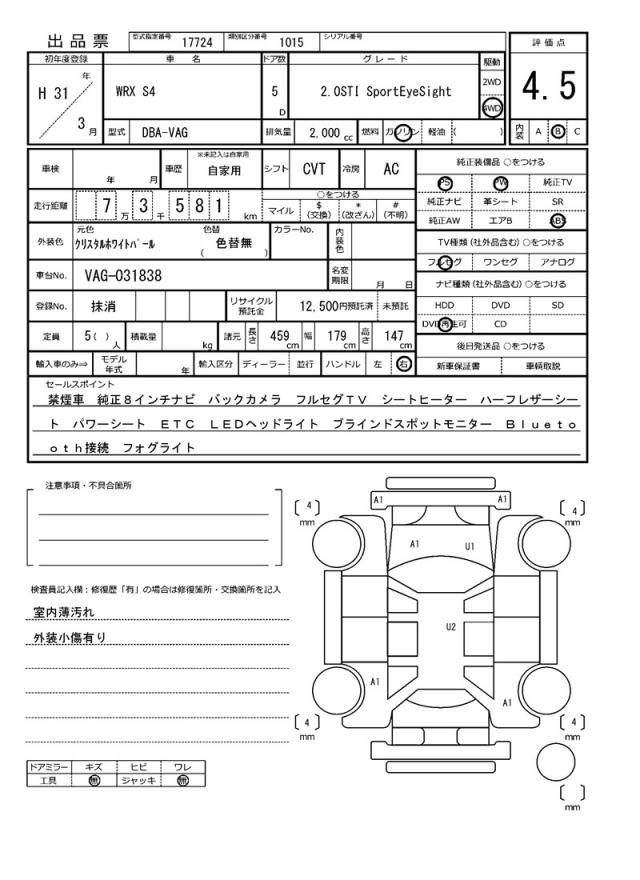 出品票 型式指定番号 17724 類別区分番号 1015 シリアル番号
評価点
4.5
初年度登録 車名 ドア数 グレード 駆動
H 31 年 3 月
WRX S4
5 D
2.0STI SportEyeSight
2WD
4WD
型式 DBA-VAG 排気量 2,000 cc 燃料 ガソリン 軽油 ( )
内装 A B C
車検 年 月 車歴 ※未記入は自家用 自家用 シフト CVT 冷房 AC
走行距離 7 万 3 千 5 8 1 km
○をつける
マイル $(交換) *(改ざん) #(不明)
外装色 元色 クリスタルホワイトパール 色替 ( 色替無 ) カラーNo. 内装色
車台No. VAG-031838 名変期限 月 日
登録No. 抹消 リサイクル預託金 12,500円預託済 未預託
定員 5( ) 人 積載量 kg 諸元 長さ 459 cm 幅 179 cm 高さ 147 cm
輸入車のみ⇒ モデル年式 年 輸入区分 ディーラー 並行 ハンドル 左 右
純正装備品 ○をつける
PS PW 純正TV
純正ナビ 革シート SR
純正AW エアB ABS
TV種類 (社外品含む) ○をつける
フルセグ ワンセグ アナログ
ナビ種類 (社外品含む) ○をつける
HDD DVD SD
DVD再生可 CD
後日発送品 ○をつける
新車保証書 車輌取説
セールスポイント
禁煙車 純正8インチナビ バックカメラ フルセグTV シートヒーター ハーフレザーシー
ト パワーシート ETC LEDヘッドライト ブラインドスポットモニター Blueto
oth接続 フォグライト
注意事項・不具合箇所
検査員記入欄:修復歴「有」の場合は修復箇所・交換箇所を記入
室内薄汚れ
外装小傷有り
ドアミラー キズ ヒビ ワレ
工具 無 ジャッキ 無
A1 A1
[ 4 ] mm
[ 4 ] mm
A1 U1
U2
A1
A1
[ 4 ] mm
[ 4 ] mm
[ ] mm